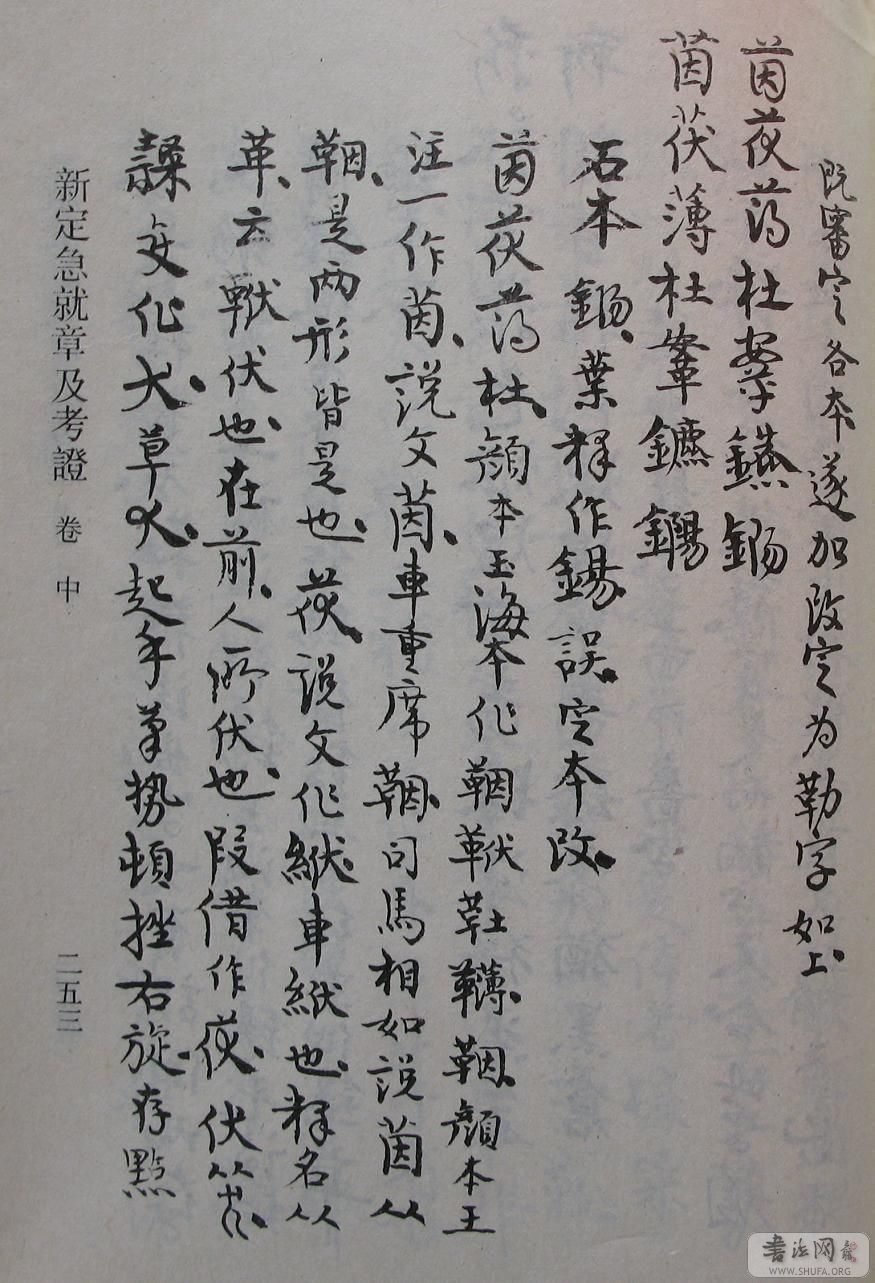 既審定各本遂加改定为勒字如上
茵茯薄杜鐎鍚
茵茯薄杜鞶鑣鐊
石本鍚葉釋作錫誤定本改
茵茯薄杜顏本玉海本作鞇靯䪙鞇顏本王
注一作茵說文茵車重席鞇司馬相如說茵从
鞇是两形皆是也茯說文作紱車紱也釋名以
革云䩙伏也在前人所伏也叚借作茯伏筊
隸文作犬草犮起手筆势頓挫右旋存點
新定急就章及考證 卷中 二五三
書法网
WWW.SHUFA.ORG